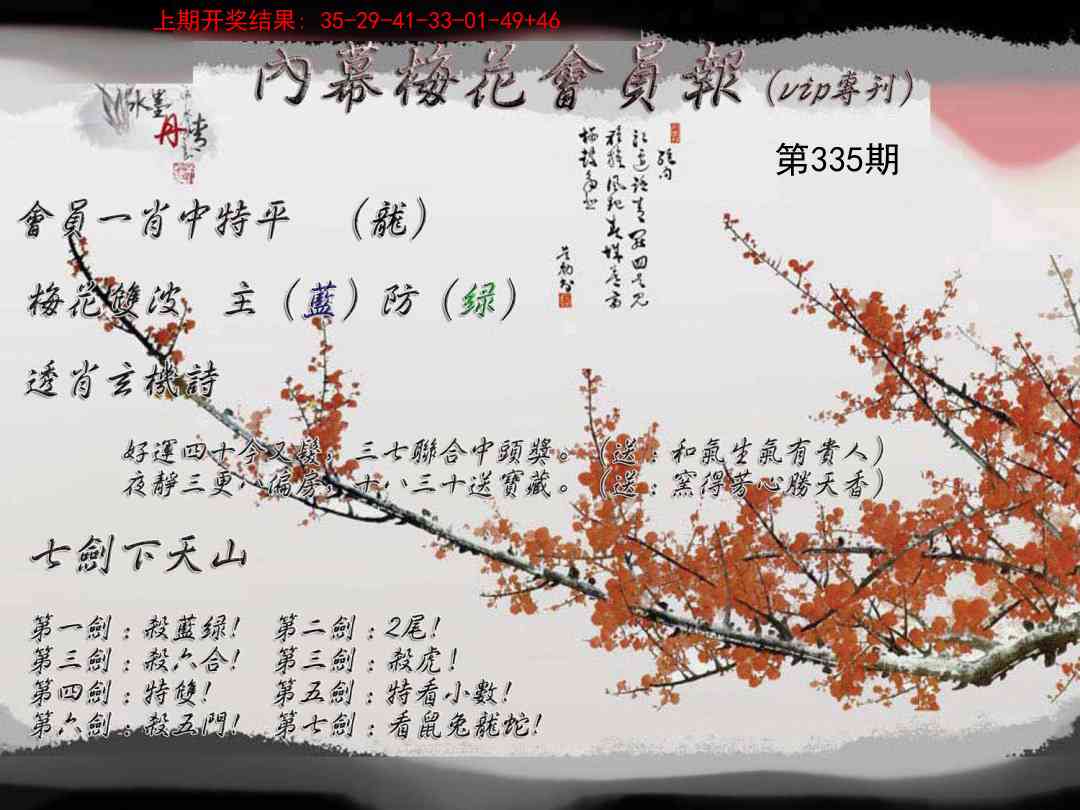 上期开奖结果: 35-29-41-33-01-49+46
內幕梅花會員報（vip專刊）
水墨
丹情
第335期
會員一肖中特平 （龍）
梅花雙波 主（藍）防（绿）
透肖玄機詩
好運四十今又發，三七聯合中頭獎。（送：和氣生氣有貴人）
夜靜三更八偏房，十八三十送寶藏。（送：窯得芳心勝天香）
七劍下天山
第一劍：殺藍绿! 第二劍：2尾!
第三劍：殺六合! 第三劍：殺虎!
第四劍：特雙! 第五劍：特看小數!
第六劍：殺五門! 第七劍：看鼠兔龍蛇!